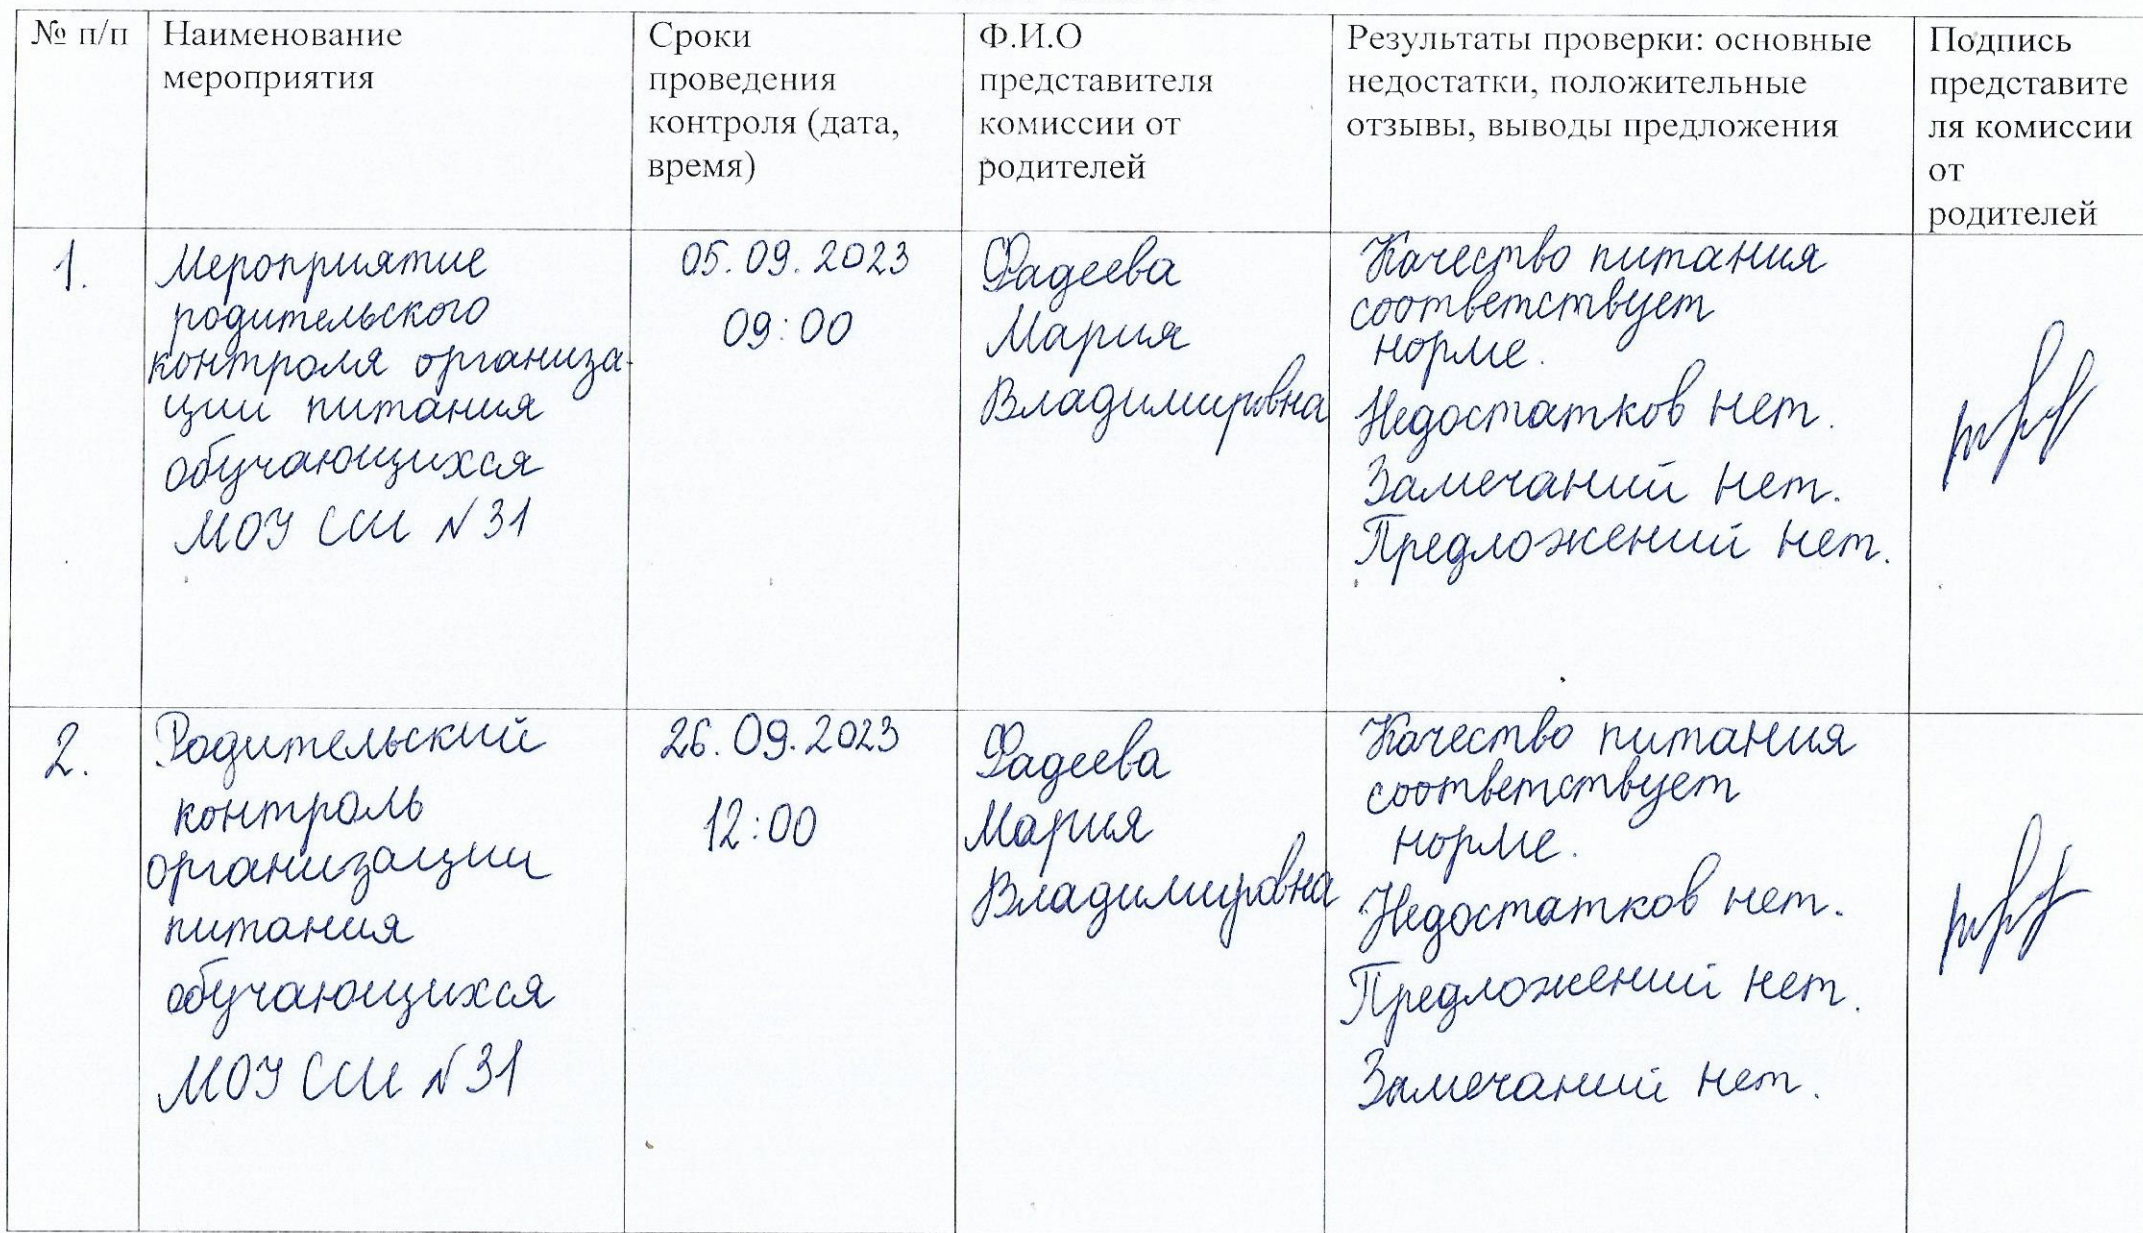 № п/п
Наименование
мероприятия
Сроки
проведения
контроля (дата,
время)
Ф.И.О
представителя
комиссии от
родителей
Результаты проверки: основные
недостатки, положительные
отзывы, выводы предложения
Подпись
представите
ля комиссии
от
родителей
1.
Мероприятие
родительского
контроля организа-
ции питания
обучающихся
МОУ СШ №31
05.09.2023
09:00
Фадеева
Мария
Владимировна
Качество питания
соответствует
норме.
Недостатков нет.
Замечаний нет.
Предложений нет.
2.
Родительский
контроль
организации
питания
обучающихся
МОУ СШ №31
26.09.2023
12:00
Фадеева
Мария
Владимировна
Качество питания
соответствует
норме.
Недостатков нет.
Предложений нет.
Замечаний нет.